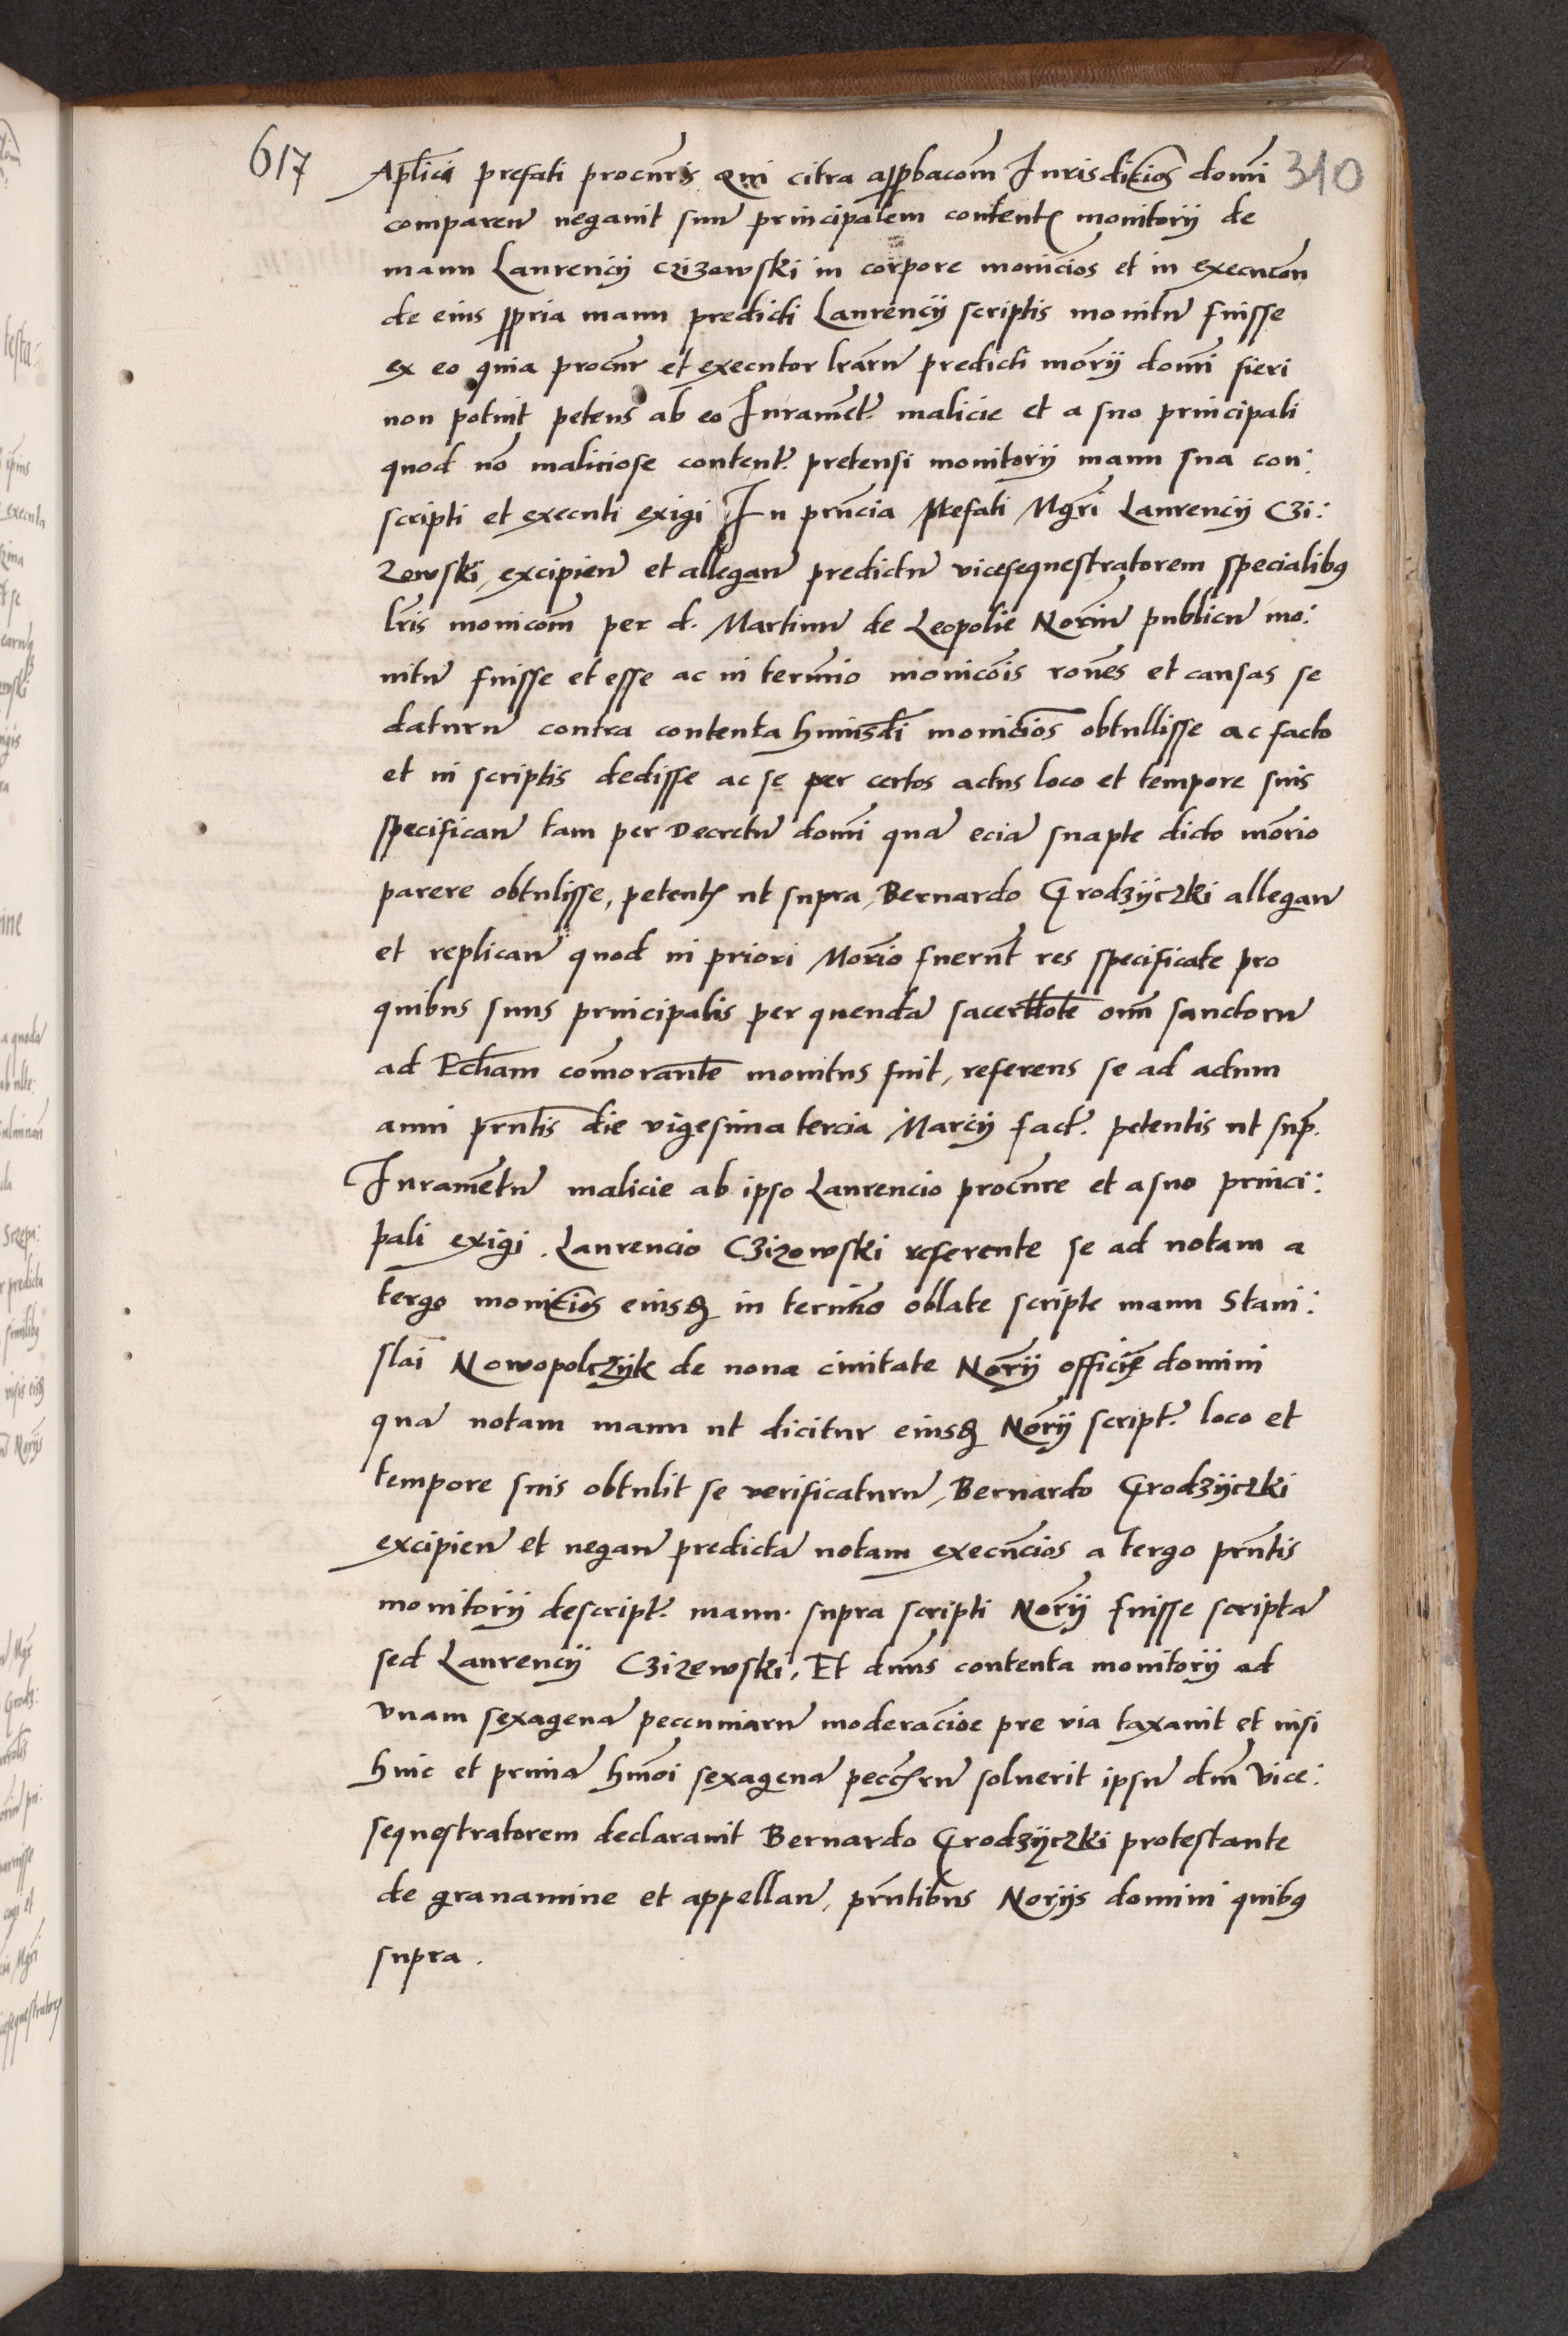 617
310
Aplici prefati procuris Qui citra approbacom Jurisdicios domi
comparen negauit suu principalem content monitorij de
manu Laurencij Czizowski in corpore monicios et in executon
de eius propria manu predicti Laurencij scriptis monitu fuisse
ex eo quia procur et executor lraru predicti morij domi fieri
non potuit petens ab eo Juramet malicie et a suo principali
quod no maliciose content pretensi monitorij manu sua con:
scripti et executi exigi In prncia prefati Mgri Laurencij Czi:
zowski, excipien et allegan predictu vicesequestratorem specialibus
lris monicom per d. Martinu de Leopolie Noriu publicu mo:
nitu fuisse et esse ac in termio monicois rones et causas se
daturu contra contenta huiusdi monicios obtullisse ac facto
et in scriptis dedisse ac se per certos actus loco et tempore suis
specifican tam per Decretu domi qua ecia suapte dicto morio
parere obtulisse, petent ut supra, Bernardo Grodzijczki allegan
et replican quod in priori Morio fuerut res specificate pro
quibus suus principalis per quenda sacerdote oim sanctoru
ad Ecliam comorante monitus fuit, referens se ad actum
anni prntis die vigesima tercia Marcij fact. petentis ut sup.
Jurametu malicie ab ipso Laurencio procure et a suo princi:
pali exigi. Laurencio Czizowski referente se ad notam a
tergo monicios eiusd in termio oblate scripte manu Stani:
slai Nowopolczijk de noua ciuitate Norij officij domini
qua notam manu ut dicitur eiusd Norij script. loco et
tempore suis obtulit se verificaturu, Bernardo Grodzijczki
excipien et negan predicta notam execucios a tergo prntis
monitorij descript. manu. supra scripti Norij fuisse scripta
sed Laurencij Czizewski, Et dnus contenta monitorij ad
vnam sexagena peccuniaru moderacioe pre via taxauit et nisi
hinc et prima hmoi sexagena pecciaru soluerit ipsu dm Vice:
sequestratorem declarauit Bernardo Grodzijczki protestante
de grauamine et appellan, prntibus Norijs domini quibus
supra.